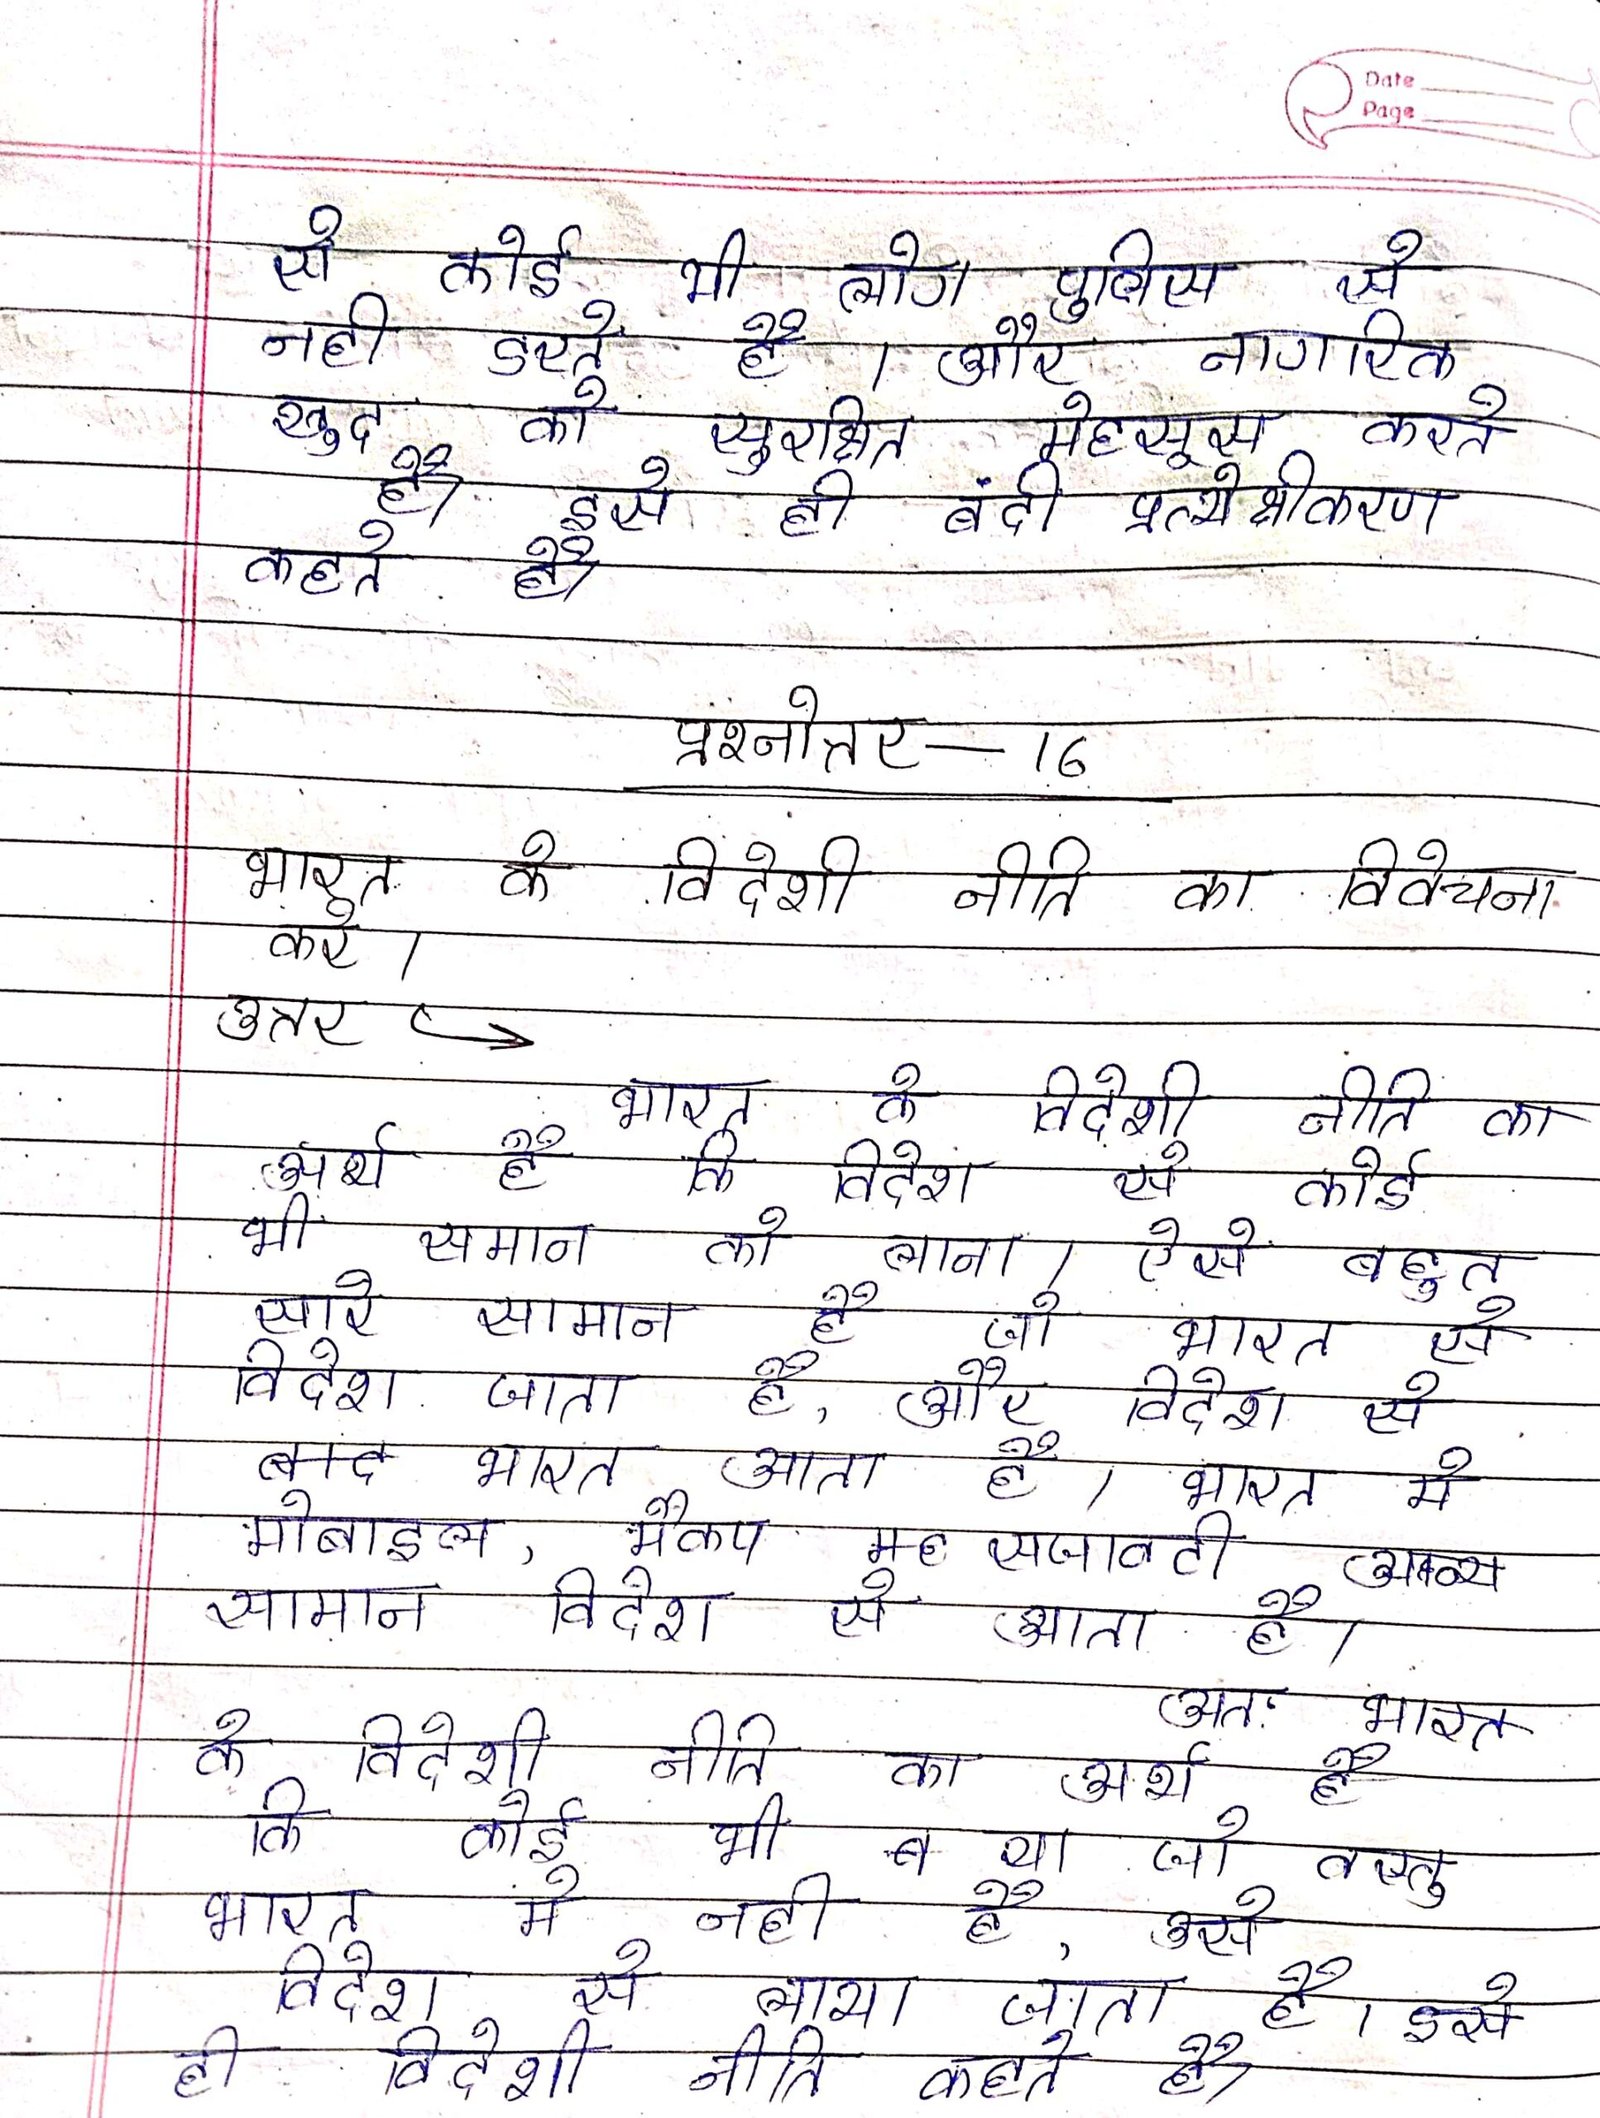 Date
Page
से कोई भी लोग पुलिस से
नही डरते है । और नागरिक
खुद को सुरक्षित मेहसूस करते
है। इसे ही बंदी प्रत्येक्षीकरण
कहते है।
प्रश्नोत्तर — 16
भारत के विदेशी नीति का विवेचना
करे ।
उत्तर ↪
भारत के विदेशी नीति का
अर्थ है कि विदेश से कोई
भी समान को लाना । ऐसे बहुत
सारे सामान है जो भारत से
विदेश जाता है, और विदेश से
भारत आता है । भारत मे
मोबाइल, मैकप सजावटी अन्य
सामान विदेश से आता है ।
अतः भारत
के विदेशी नीति का अर्थ है
कि कोई भी या जो वस्तु
भारत मे नही है, उसे
विदेश से लाया जाता है । इसे
ही विदेशी नीति कहते है।